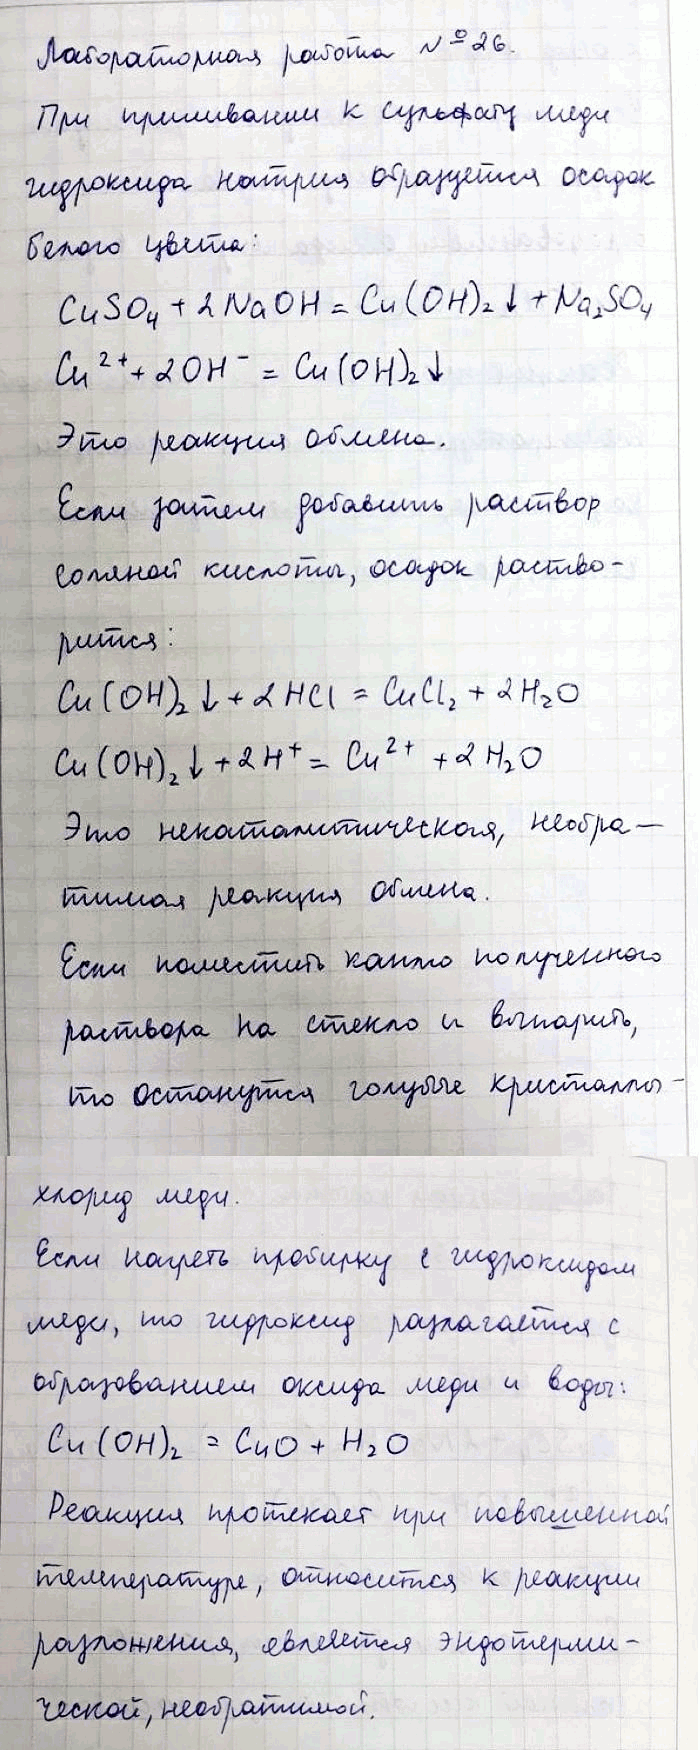 Лабораторная работа №26.
При приливании к сульфату меди
гидроксида натрия образуется осадок
белого цвета:
CuSO₄ + 2NaOH = Cu(OH)₂↓ + Na₂SO₄
Cu²⁺ + 2OH⁻ = Cu(OH)₂↓
Это реакция обмена.
Если затем добавить раствор
соляной кислоты, осадок раство-
рится:
Cu(OH)₂↓ + 2HCl = CuCl₂ + 2H₂O
Cu(OH)₂↓ + 2H⁺ = Cu²⁺ + 2H₂O
Это некаталитическая, необра-
тимая реакция обмена.
Если поместить каплю полученного
раствора на стекло и выпарить,
то останутся голубые кристаллы-
хлорид меди.
Если нагреть пробирку с гидроксидом
меди, то гидроксид разлагается с
образованием оксида меди и воды:
Cu(OH)₂ = CuO + H₂O
Реакция протекает при повышенной
температуре, относится к реакции
разложения, является эндотерми-
ческой, необратимой.